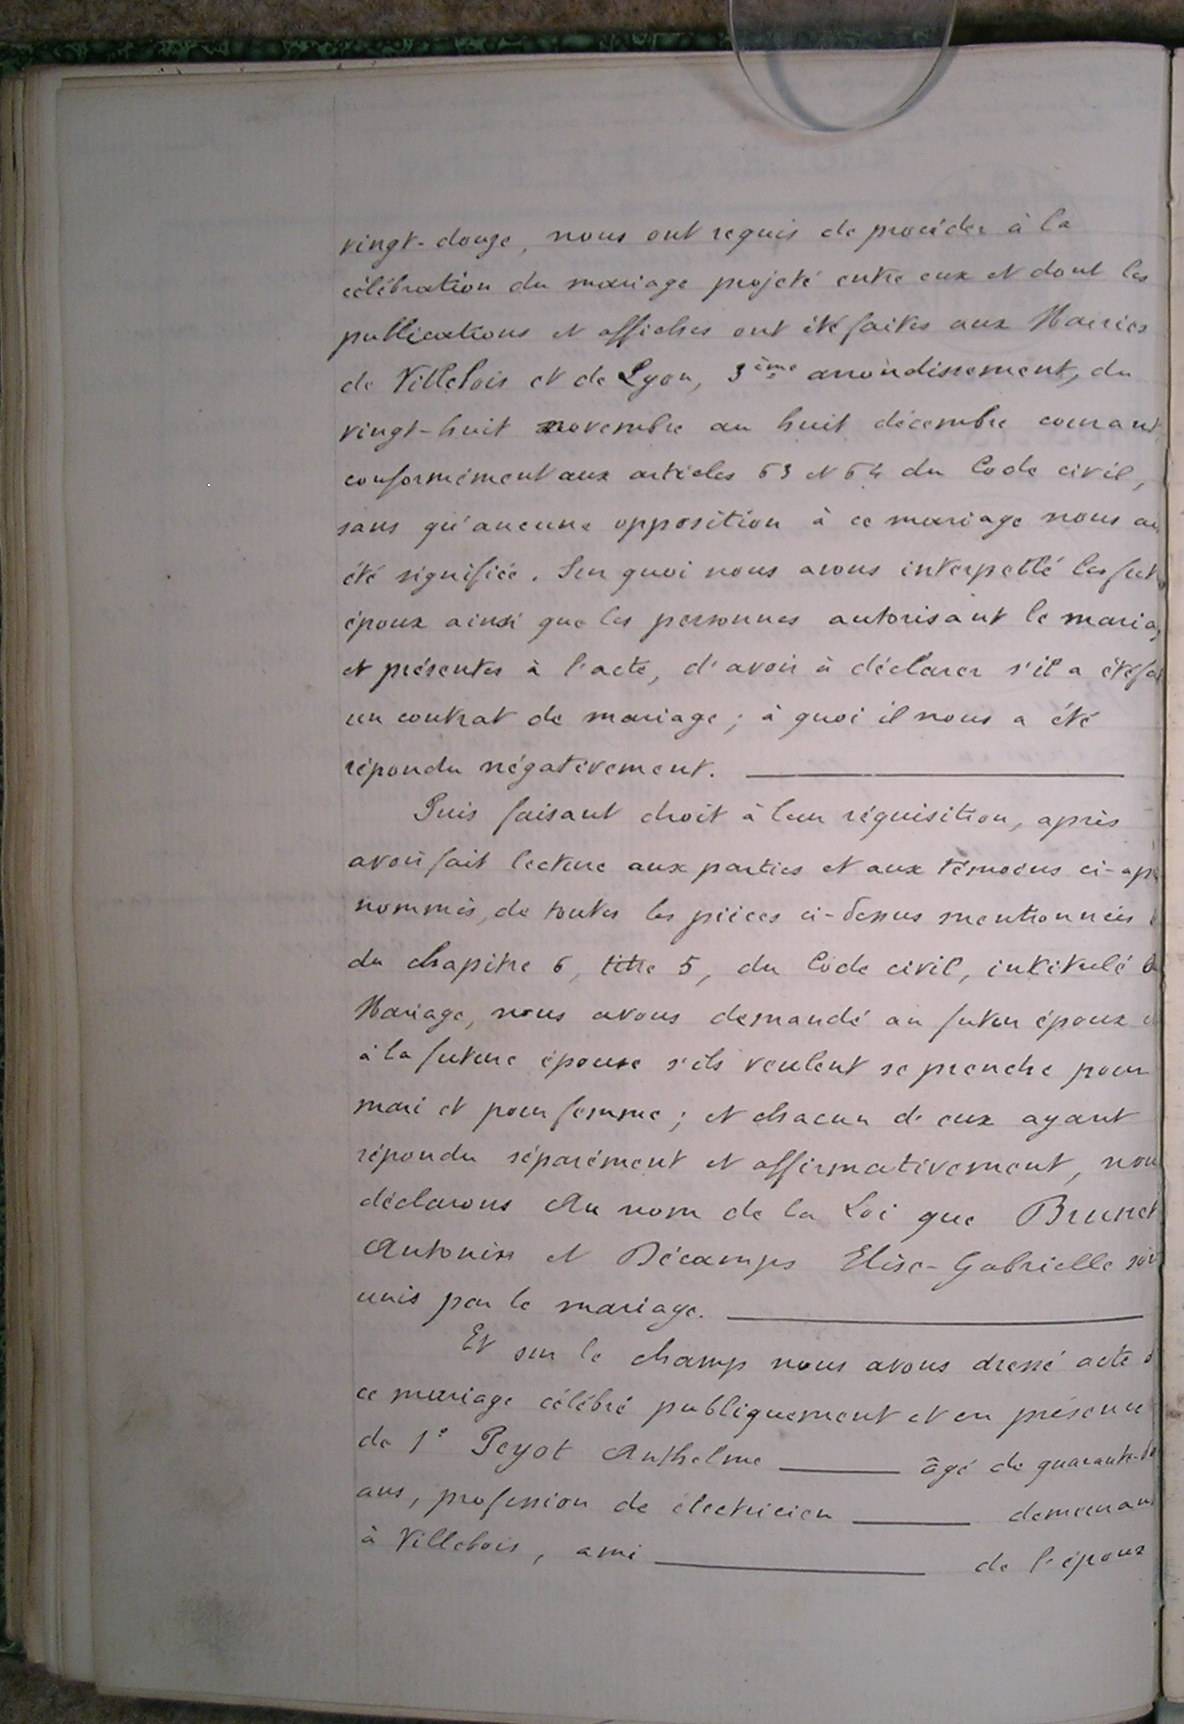 vingt-douze, nous ont requis de procéder à la
célébration du mariage projeté entre eux et dont les
publications et affiches ont été faites aux Mairies
de Villebois et de Lyon, 3ème arrondissement, du
vingt-huit novembre au huit décembre courant
conformément aux articles 63 et 64 du Code civil,
sans qu'aucune opposition à ce mariage nous
été signifiée. Sur quoi nous avons interpellé les fut
époux ainsi que les personnes autorisant le maria
et présentes à l'acte, d'avoir à déclarer s'il a été
un contrat de mariage ; à quoi il nous a été
répondu négativement.
Puis faisant droit à leur réquisition, après
avoir fait lecture aux parties et aux témoins ci-ap
nommés, de toutes les pièces ci-dessus mentionnées
du chapitre 6, titre 5, du Code civil, intitulé
Mariage, nous avons demandé au futur époux
à la future épouse s'ils veulent se prendre pour
mari et pour femme ; et chacun d'eux ayant
répondu séparément et affirmativement, nou
déclarons Au nom de la Loi que Brunet
Antonin et Décamps Elise-Gabrielle
unis par le mariage.
Et sur le champ nous avons dressé acte
ce mariage célébré publiquement et en présence
de 1° Peyot Anthelme âgé de quarante-
ans, profession de électricien demeurant
à Villebois, ami de l'époux